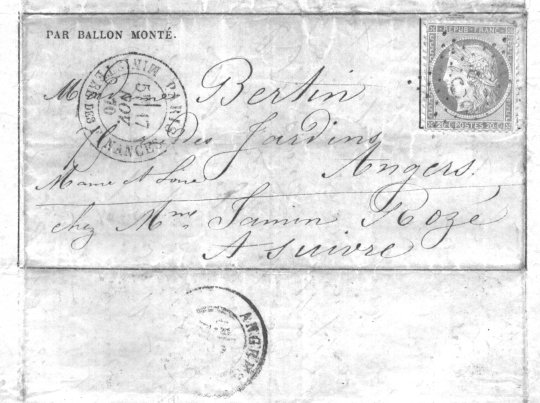 PAR BALLON MONTÉ.
REPUB. FRANC.
20 C. POSTES 20 C.
PARIS
MINISTÈRE DES FINANCES
5E 17
NOV.
70
Bertin
des Jardins
Angers
Maine et Loire
chez Mme Jamin Rozé
A suivre
ANGERS